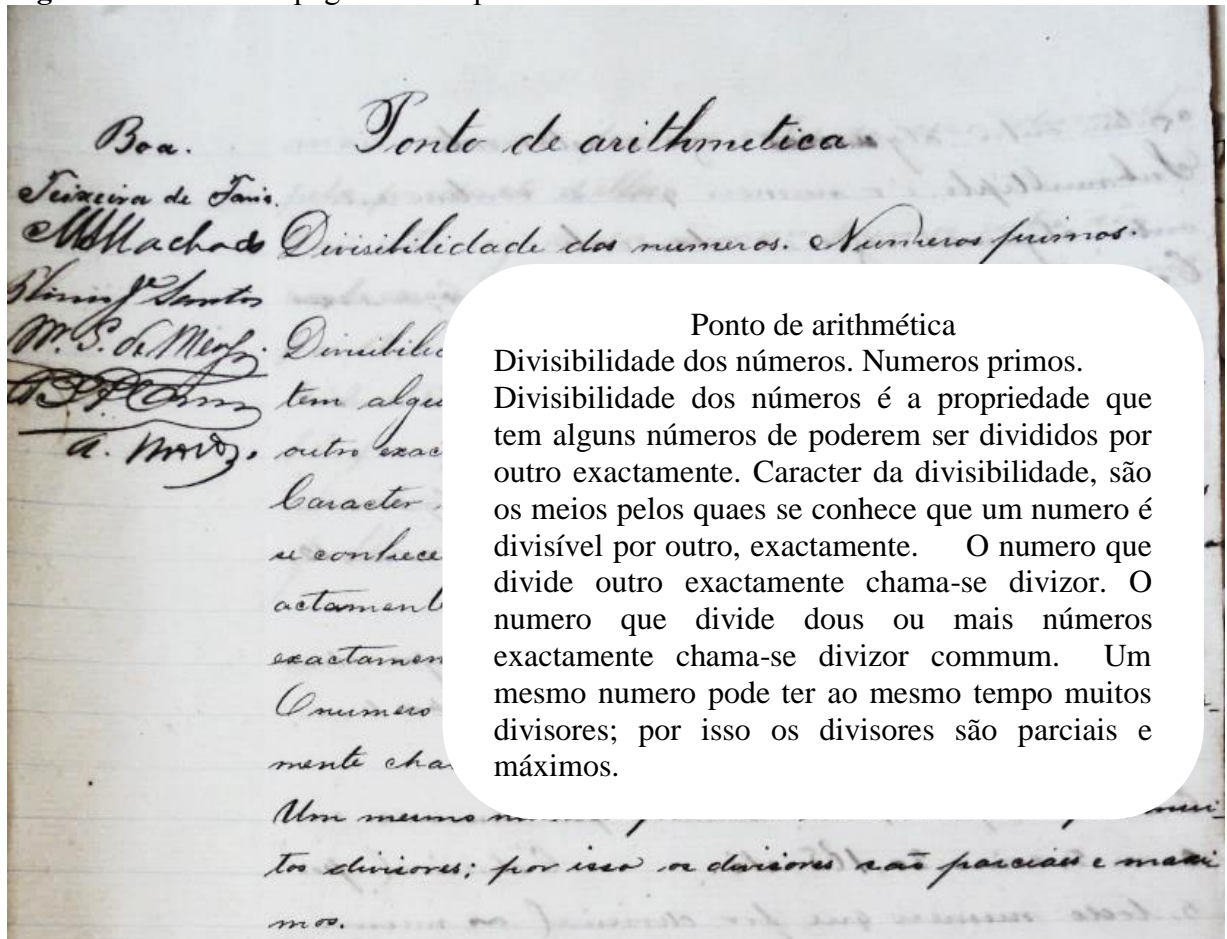 Ponto de arithmetica
Boa.
Teixeira de Faria.
MMachado
Divisibilidade dos numeros. Numeros primos.
Santos
M. S. de
Divisibilid
tem algu
A.
outro exac
Caracter
se conhece
actament
exactamen
O numero
mente cha
Um mesmo
mui_
tos divisores; por isso os divisores são parciaes e maxi
mos.
Ponto de arithmética
Divisibilidade dos números. Numeros primos.
Divisibilidade dos números é a propriedade que
tem alguns números de poderem ser divididos por
outro exactamente. Caracter da divisibilidade, são
os meios pelos quaes se conhece que um numero é
divisível por outro, exactamente. O numero que
divide outro exactamente chama-se divizor. O
numero que divide dous ou mais números
exactamente chama-se divizor commum. Um
mesmo numero pode ter ao mesmo tempo muitos
divisores; por isso os divisores são parciais e
máximos.